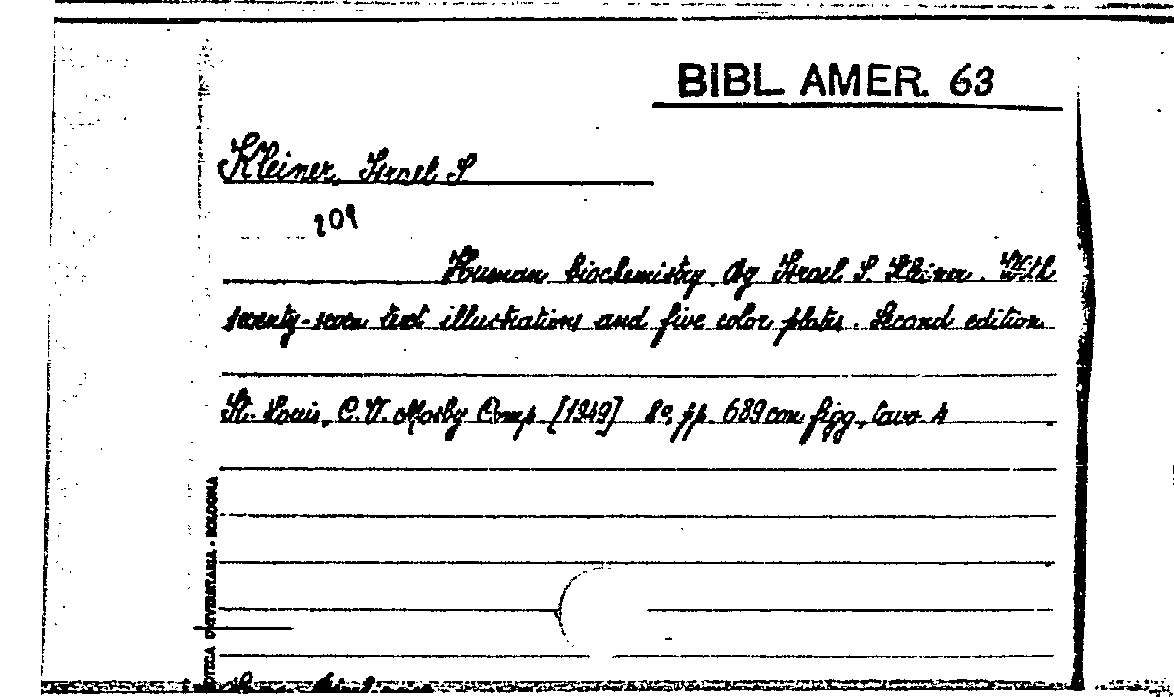 BIBL. AMER. 63
Kleiner, Israel S
209
Human biochemistry by Israel S. Kleiner. With
seventy-seven text illustrations and five color plates. Second edition
St. Louis, C. V. Mosby Comp. [1949] 8°, pp. 689 con figg., tavv. 4
OTECA UNIVERSITARIA - BOLOGNA